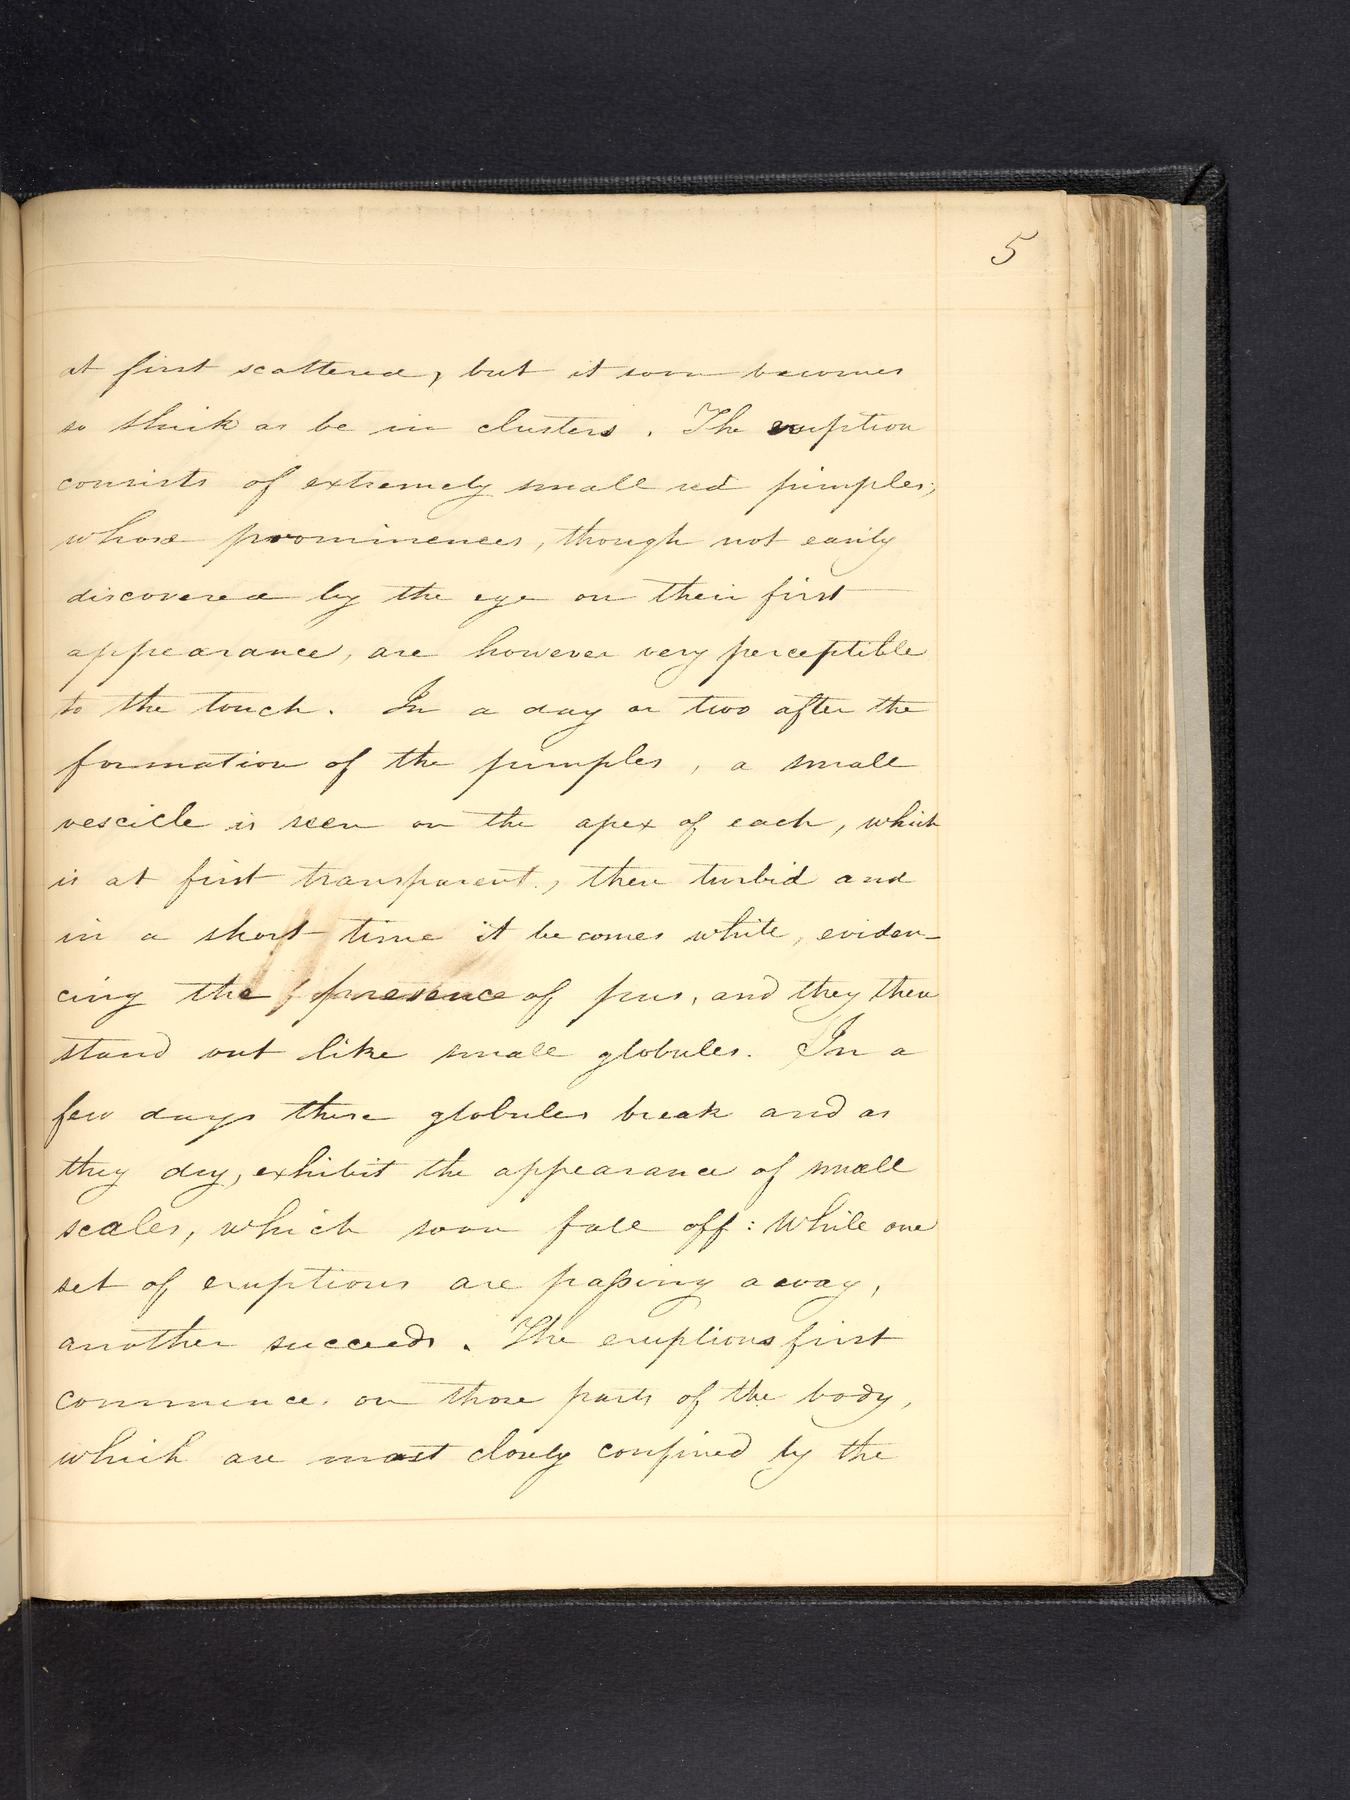 5
at first scattered, but it soon becomes
so thick as be in clusters. The eruption
consists of extremely small red pimples,
whose prominences, though not easily
discovered by the eye on their first
appearance, are however very perceptible
to the touch. In a day or two after the
formation of the pimples, a small
vescicle is seen on the apex of each, which
is at first transparent, then turbid and
in a short time it becomes white, eviden-
cing the presence of pus, and they then
stand out like small globules. In a
few days these globules break and as
they dry, exhibit the appearance of small
scales, which soon fall off: While one
set of eruptions are passing away,
another succeeds. The eruptions first
commence on those parts of the body,
which are most closely confined by the